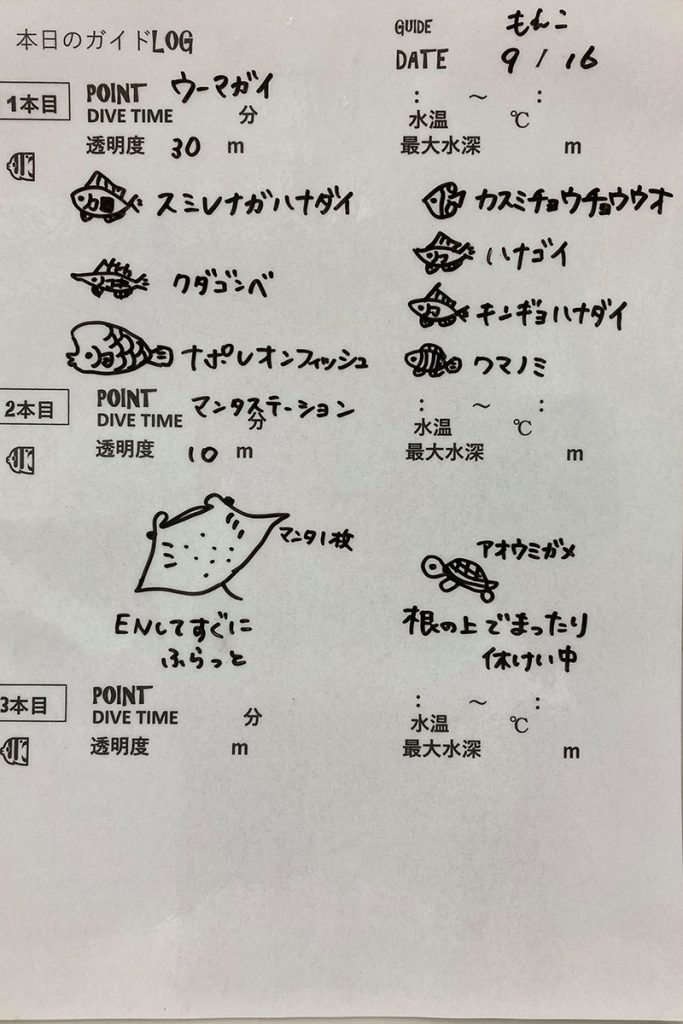 本日のガイドLOG
GUIDE もんこ
DATE 9 / 16
1本目 POINT ウーマガイ : ～ :
DIVE TIME 分 水温 ℃
透明度 30 m 最大水深 m
スミレナガハナダイ
カスミチョウチョウウオ
ハナゴイ
クダゴンベ
キンギョハナダイ
ナポレオンフィッシュ
クマノミ
2本目 POINT マンタステーション : ～ :
DIVE TIME 分 水温 ℃
透明度 10 m 最大水深 m
マンタ1枚
アオウミガメ
ENしてすぐに
ふらっと
根の上でまったり
休けい中
3本目 POINT : ～ :
DIVE TIME 分 水温 ℃
透明度 m 最大水深 m